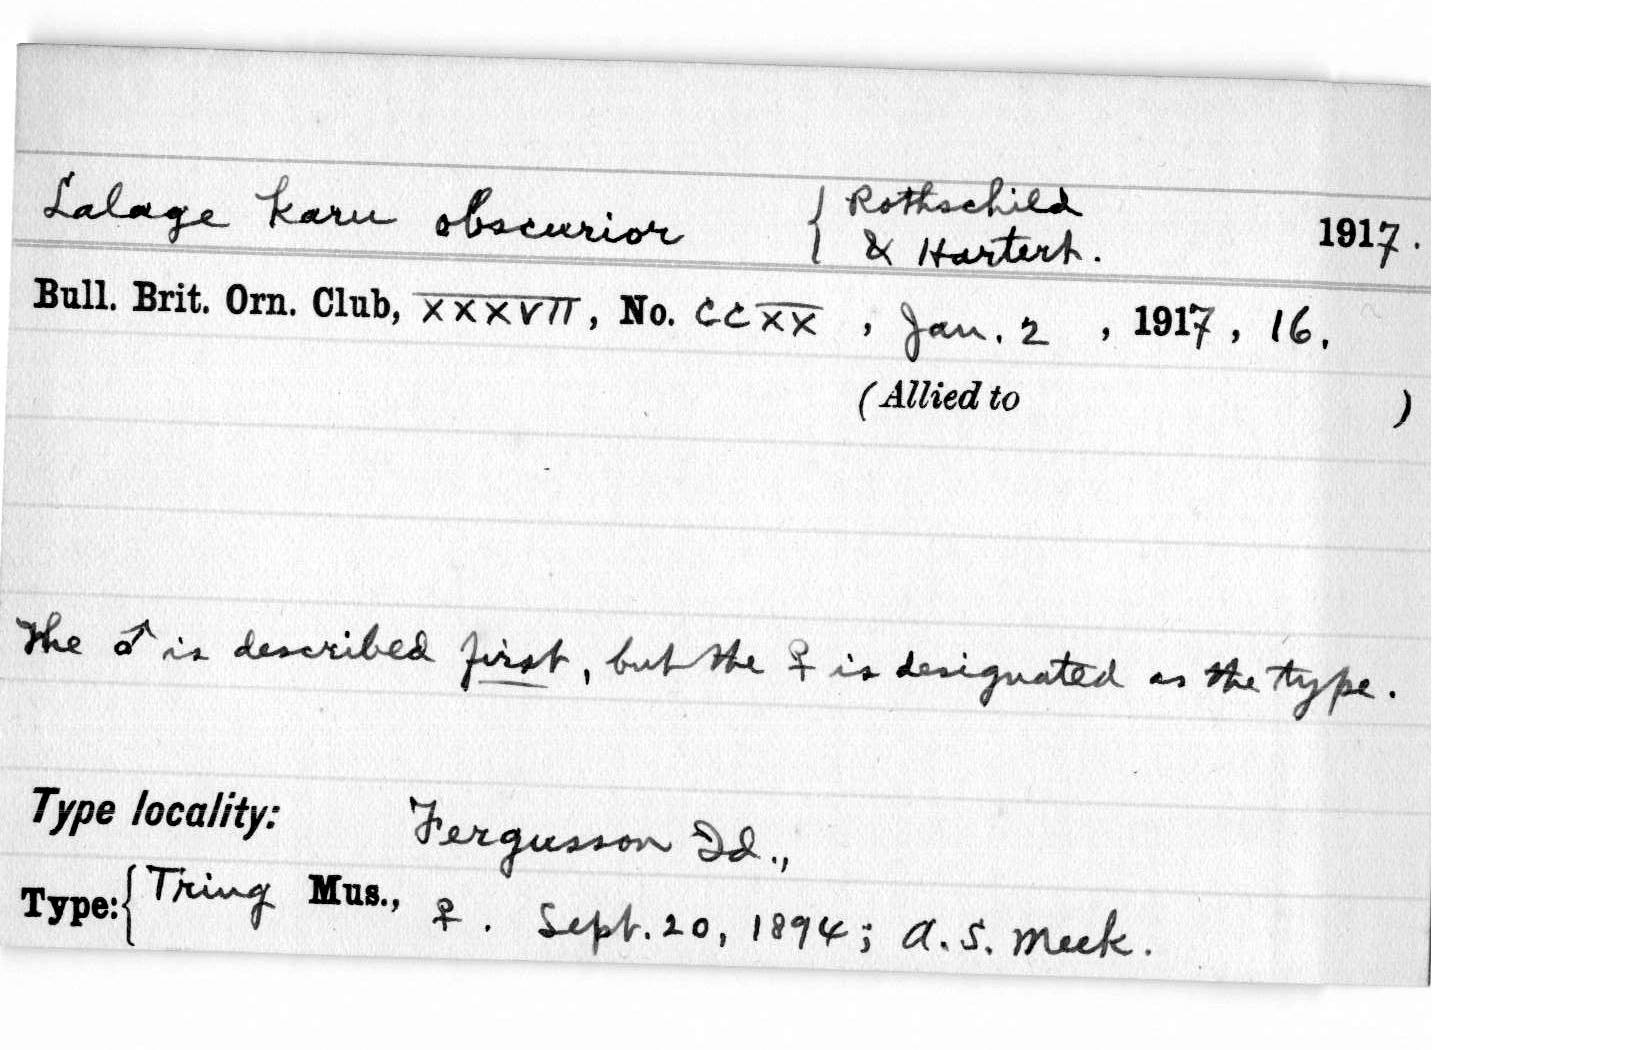 Lalage karu obscurior { Rothschild & Hartert. 1917.
Bull. Brit. Orn. Club, XXXVII, No. CCXX, Jan. 2, 1917, 16.
(Allied to )
The ♂ is described first, but the ♀ is designated as the type.
Type locality: Fergusson Id.,
Type: { Tring Mus., ♀. Sept. 20, 1894; A. S. Meek.